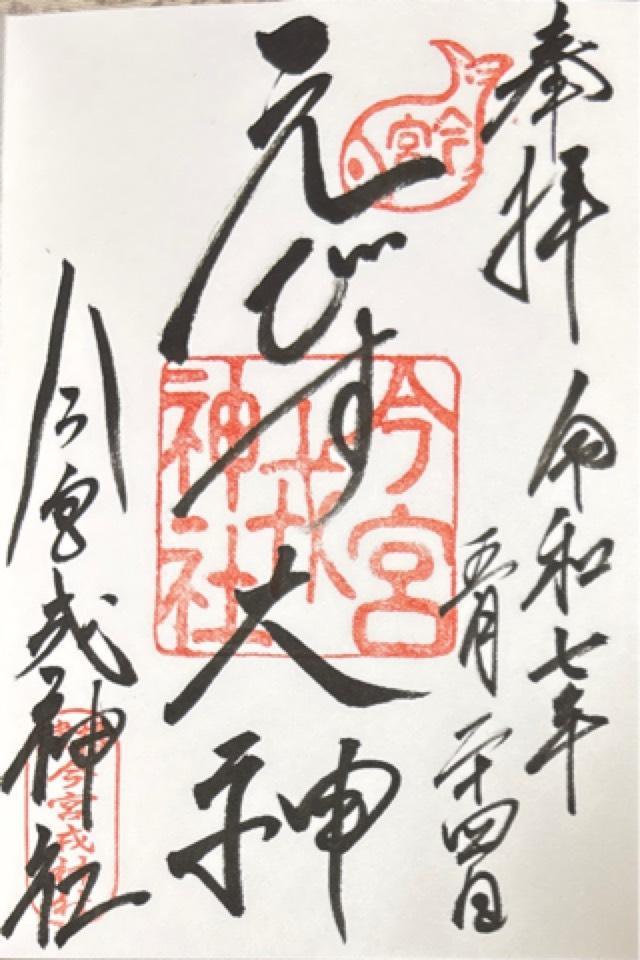 奉拝
令和七年
五月二十四日
えびす大神
今宮戎神社
今宮
今宮戎神社
今宮戎神社